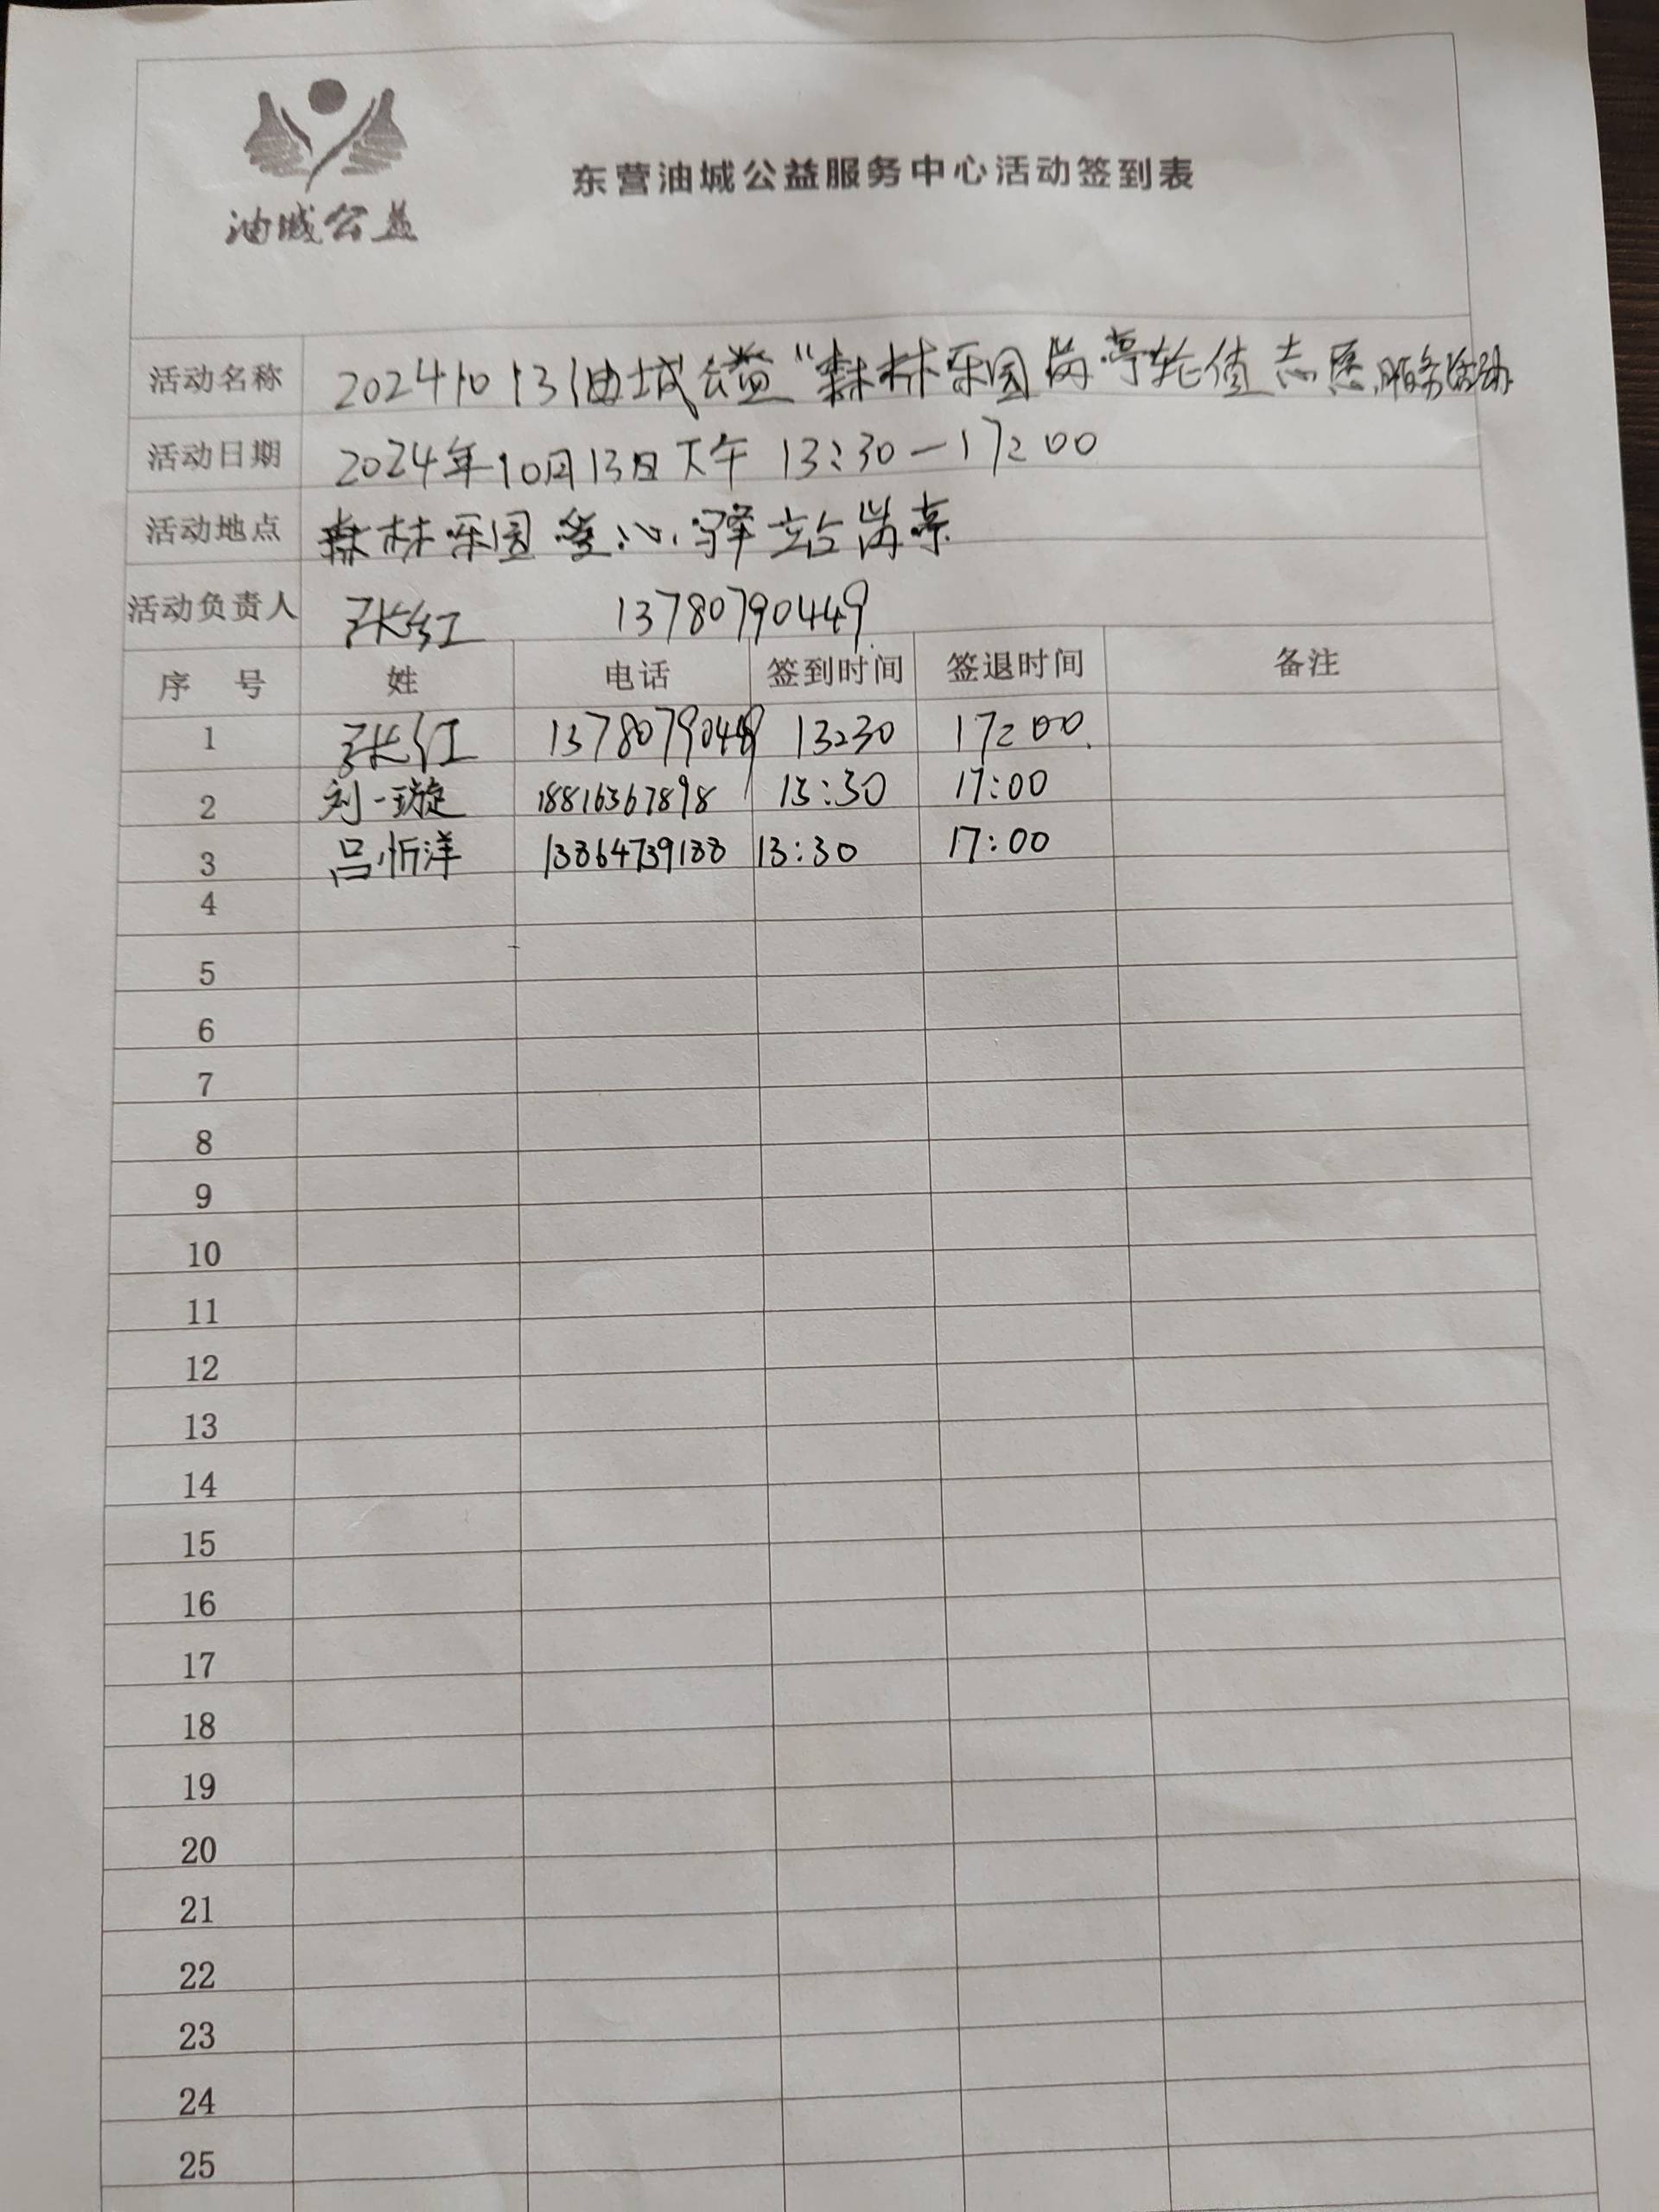 油城公益
东营油城公益服务中心活动签到表
活动名称 20241013油城公益“森林乐园岗亭轮值志愿服务活动
活动日期 2024年10月13日下午 13:30—17:00
活动地点 森林乐园爱心驿站岗亭
活动负责人 张红 13780790449
序 号 姓 电话 签到时间 签退时间 备注
1 张红 1378079049 13:30 17:00
2 刘一璇 18816367898 13:30 17:00
3 吕忻洋 13864739188 13:30 17:00
4
5
6
7
8
9
10
11
12
13
14
15
16
17
18
19
20
21
22
23
24
25